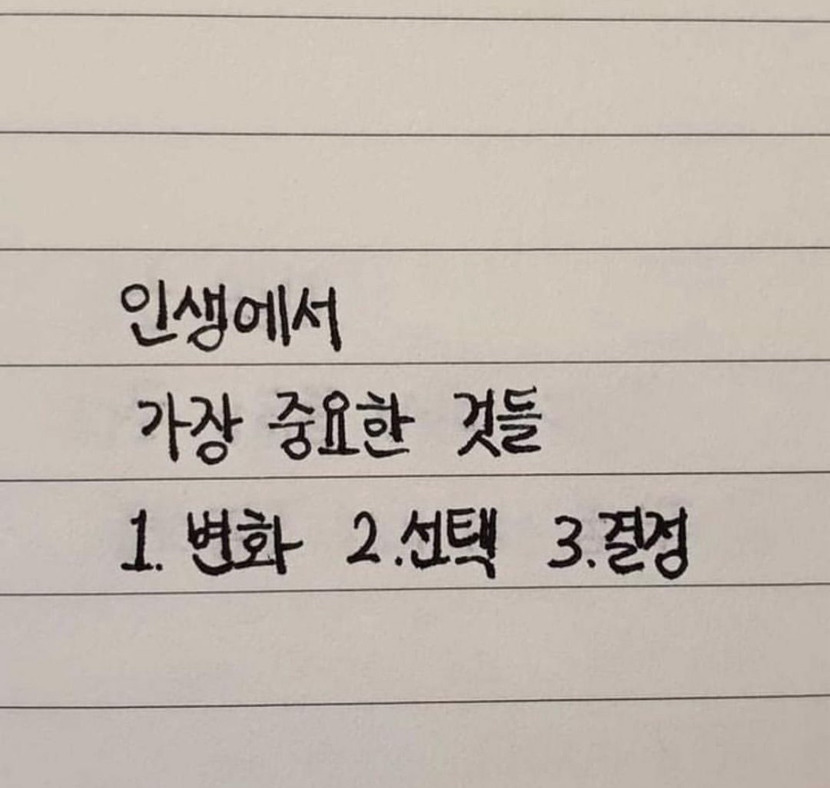 인생에서
가장 중요한 것들
1. 변화 2.선택 3.결정